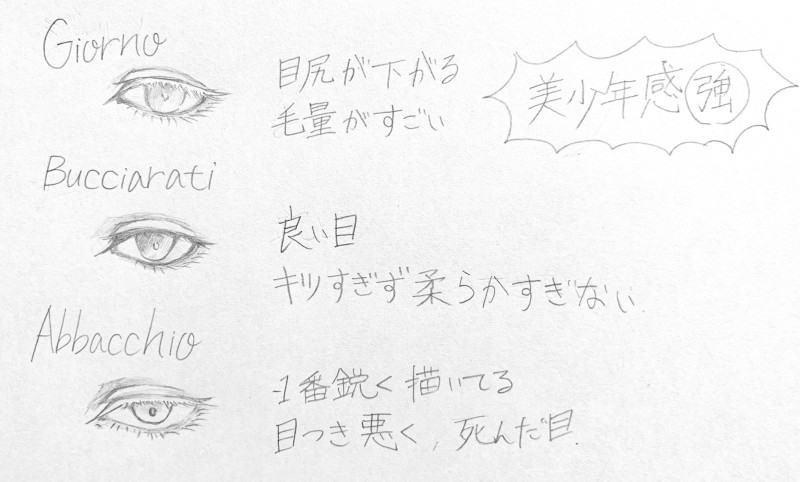 Giorno
目尻が下がる
毛量がすごい
美少年感強
Bucciarati
良い目
キツすぎず柔らかすぎない
Abbacchio
1番鋭く描いてる
目つき悪く、死んだ目.